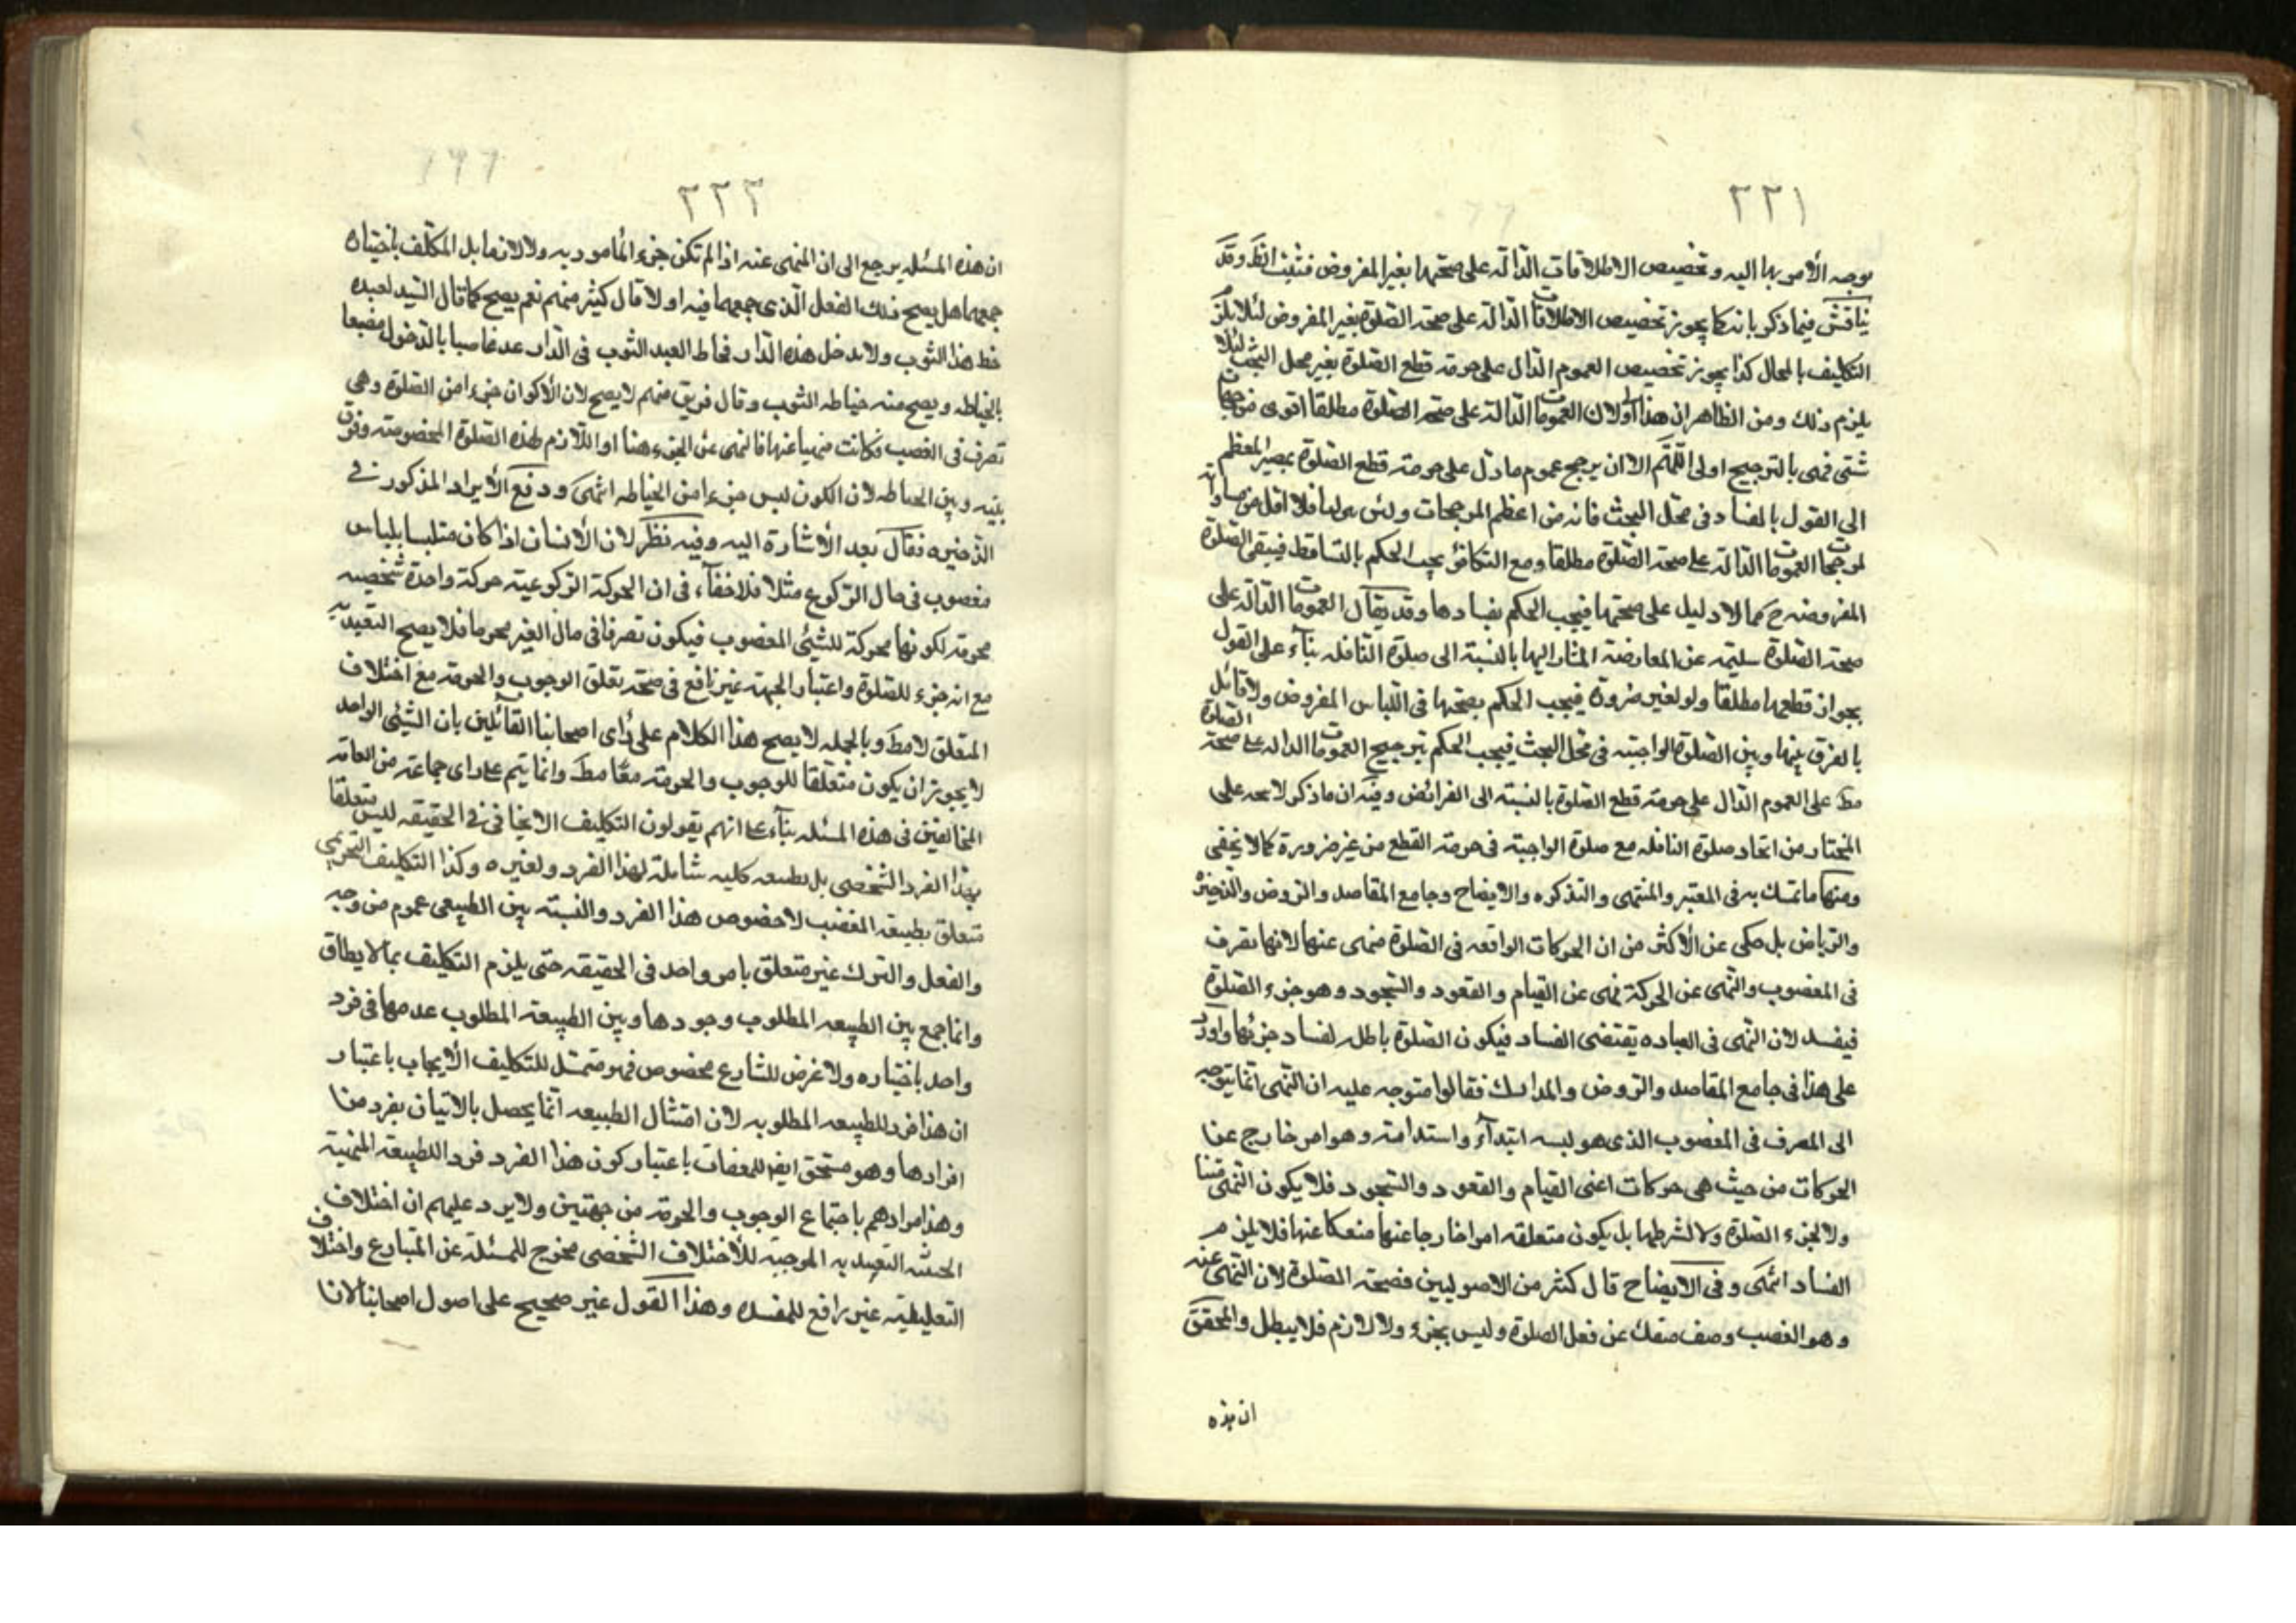 ٢٢١
يوجه الأمر بها اليه وتخصيص الاطلاقات الدالة على صحتها بغير المفروض فثبت وقد
يناقش فيما ذكر بانه كما يجوز تخصيص الاطلاقات الدالة على صحة الصلوة بغير المفروض لئلا يلزم
التكليف بالمحال كذا يجوز تخصيص العموم الدال على حرمة قطع الصلوة بغير محل البحث لئلا
يلزم ذلك ومن الظاهر ان هذا اولا لان العمومات الدالة على صحة الصلوة مطلقا اقوى من جهات
شتى فهى بالترجيح اولى اللهم الا ان يرجح عموم ما دل على حرمة قطع الصلوة بمصير المعظم
الى القول بالفساد فى محل البحث فانه من اعظم المرجحات ولئن فلا اقل من مساواته
لمرجحات العمومات الدالة على صحة الصلوة مطلقا ومع التكافؤ يجب الحكم بالتساقط فيبقى الصلوة
المفروضة ح مما لا دليل على صحتها فيجب الحكم بفسادها وقد يقال العمومات الدالة على
صحة الصلوة سليمة عن المعارضة المشار اليها بالنسبة الى صلوة النافله بناء على القول
بجواز قطعها مطلقا ولو لغير ضرورة فيجب الحكم بصحتها فى اللباس المفروض ولا قائل
بالفرق بينها وبين الصلوة الواجبة فى محل البحث فيجب الحكم بترجيح العمومات الدالة على صحة الصلوة
مط على العموم الدال على حرمة قطع الصلوة بالنسبة الى الفرائض وفيه ان ما ذكر لا على
المختار من اتحاد صلوة النافله مع صلوة الواجبة فى حرمة القطع من غير ضرورة كما لا يخفى
ومنها ما تمسك به فى المعتبر والمنتهى والتذكره والايضاح وجامع المقاصد والروض والذخيرة
والرياض بل حكى عن الأكثر من ان الحركات الواقعه فى الصلوة منهى عنها لانها تصرف
فى المغصوب والنهى عن الحركة نهى عن القيام والقعود والسجود وهو جزء الصلوة
فيفسد لان النهى فى العباده يقتضى الفساد فيكون الصلوة باطله لفساد جزئها واورد
على هذا فى جامع المقاصد والروض والمدارك فقالوا متوجه عليه ان النهى انما يتوجه
الى التصرف فى المغصوب الذى هو لبسه ابتداء واستدامة وهو امر خارج عن
الحركات من حيث هى حركات اعنى القيام والقعود والسجود فلا يكون النهى
ولا لجزء الصلوة ولا لشرطها بل يكون متعلقه امرا خارجا عنها منفكا عنها فلا يلزم
الفساد انتهى وفى الايضاح قال كثير من الاصوليين فصحة الصلوة لان النهى عنه
وهو الغصب وصف منفك عن فعل الصلوة وليس بجزء ولا لازم فلا يبطل والمحقق
ان هذه
٢٢٢
ان هذه المسئله يرجع الى ان المنهى عنه اذا لم تكن جزء المأمور به ولا لازما بل المكلف باختياره
جمعهما هل يصح ذلك الفعل الذى جمعهما فيه او لا قال كثير منهم نعم يصح كما قال السيد لعبده
خط هذا الثوب ولا تدخل هذه الدار فخاط العبد الثوب فى الدار عد غاصبا بالدخول مضيعا
بالخياطه ويصح منه خياطه الثوب وقال فريق منهم لا يصح لان الأكوان جزء من الصلوة وهى
تصرف فى الغصب فكانت منهيا عنها فالنهى عن الجزء هنا او اللازم لهذه الصلوة المخصوصة وفرق
بينه وبين الخياطه لان الكون ليس جزءا من الخياطه انتهى ودفع الأيراد المذكور فى
الذخيره فقال بعد الأشارة اليه وفيه نظر لان الأنسان اذا كان متلبسا بلباس
مغصوب فى حال الركوع مثلا فلا خفاء فى ان الحركة الركوعية حركة واحدة شخصية
محرمة لكونها محركة للشيئ المغصوب فيكون تصرفا فى مال الغير محرما فلا يصح التعبد به
مع انه جزء للصلوة واعتبار الجهة غير نافع فى صحة تعلق الوجوب والحرمة مع اختلاف
المتعلق لا مط وبالجمله لا يصح هذا الكلام على رأى اصحابنا القائلين بان الشيئ الواحد
لا يجوز ان يكون متعلقا للوجوب والحرمة معا مط وانما يتم على راى جماعة من العامه
المخالفين فى هذه المسئله بناء على انهم يقولون التكليف الايجابى فى الحقيقه ليس متعلقا
بهذا الفرد الشخصى بل بطبيعه كليه شاملة لهذا الفرد ولغيره وكذا التكليف التحريمى
متعلق بطبيعه الغصب لا خصوص هذا الفرد والنسبة بين الطبيعى عموم من وجه
والفعل والترك غير متعلق بامر واحد فى الحقيقه حتى يلزم التكليف بما لا يطاق
وانما جمع بين الطبيعه المطلوب وجودها وبين الطبيعة المطلوب عدمها فى فرد
واحد باختياره ولا غرض للشارع مخصوص فهو متمثل للتكليف الأيجاب باعتبار
ان هذا فرد للطبيعه المطلوبه لان امتثال الطبيعه انما يحصل بالاتيان بفرد من
افرادها وهو مستحق ايضا للعقاب باعتبار كون هذا الفرد فردا للطبيعة المنهية
وهذا مرادهم باجتماع الوجوب والحرمة من جهتين ولا يرد عليهم ان اختلاف
التقييديه الموجبة للأختلاف الشخصى مخرج للمسئلة عن المتنازع واختلاف
التعليلية غير رافع للمفسده وهذا القول غير صحيح على اصول اصحابنا لانا